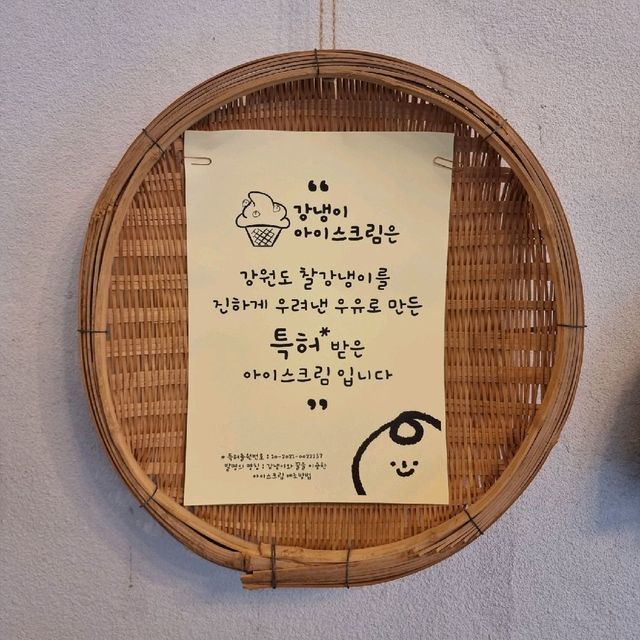 “
강냉이
아이스크림은
강원도 찰강냉이를
진하게 우려낸 우유로 만든
특허* 받은
아이스크림 입니다
”
* 특허출원번호 : 10-2021-0022137
발명의 명칭 : 강냉이와 꿀을 이용한
아이스크림 제조방법